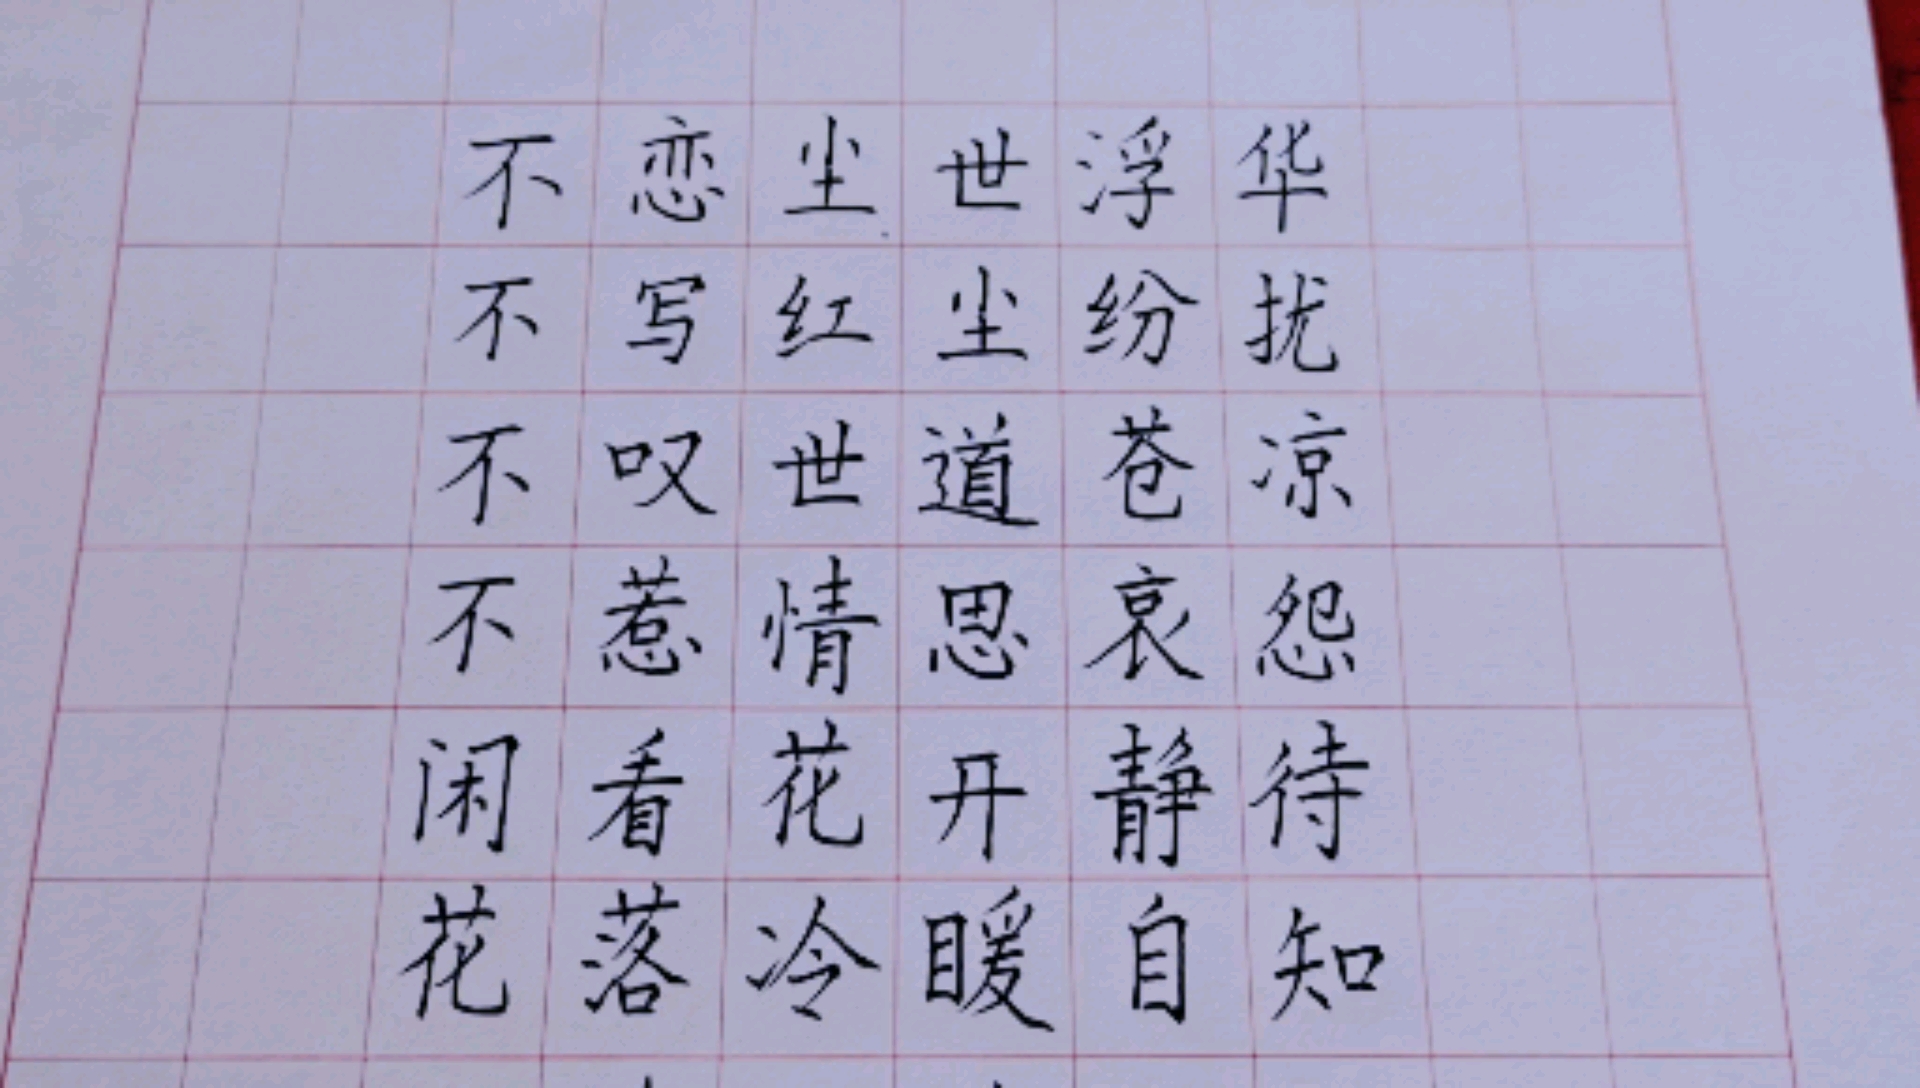 不恋尘世浮华
不写红尘纷扰
不叹世道苍凉
不惹情思哀怨
闲看花开静待
花落冷暖自知